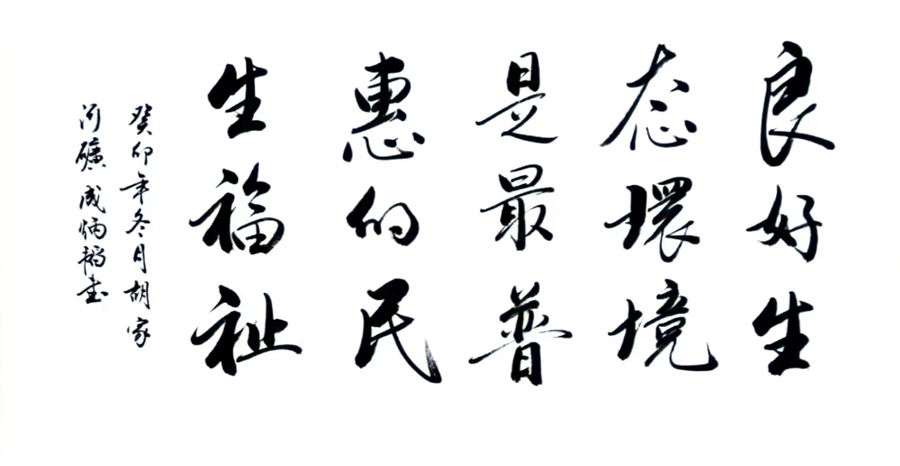 良好生
态環境
是最普
惠的民
生福祉
癸卯年冬月胡家
河礦成炳韜書